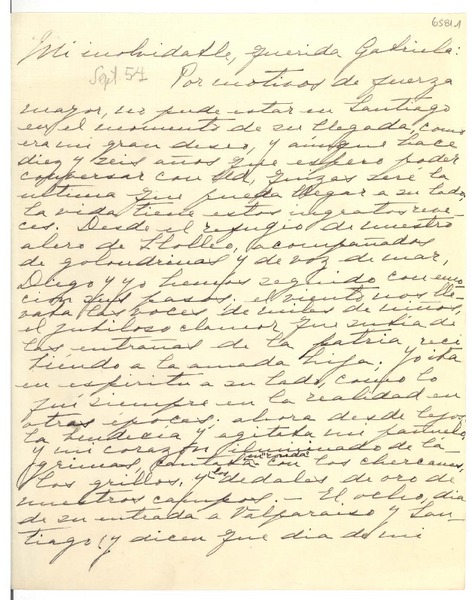 6581A
Mi inolvidable, querida Gabriela:
Sept 54
Por motivos de fuerza
mayor, no pude estar en Santiago
en el momento de su llegada, como
era mi gran deseo, y aunque hace
diez y seis años que espero poder
conversar con Ud, quizas seré la
ultima que pueda llegar a su lado,
la vida tiene estos ingratos reve-
ces. Desde el refugio de nuestro
alero de Llolleo, acompañados
de golondrinas y de voz de mar,
Diego y yo hemos seguido con emo-
ción sus pasos. el viento nos lle-
vaba las voces de miles de niños,
el jubiloso clamor que subia de
las entrañas de la patria reci
biendo a la amada hija; yo iba
en espiritu a su lado, como lo
fui siempre en la realidad en
otras épocas, ahora desde lejos
la bendecia y agitaba mi pañuelo
y mi corazón iluminado de lá-
grimas, cantaba con los chercanes,
los grillos, y los dedales de oro de
nuestros campos. — El ocho, dia
de su entrada a Valparaiso y San-
tiago, y dicen que dia de mi